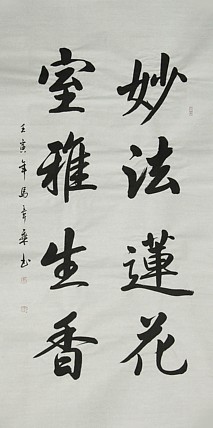 妙法蓮花
室雅生香
壬寅年馬